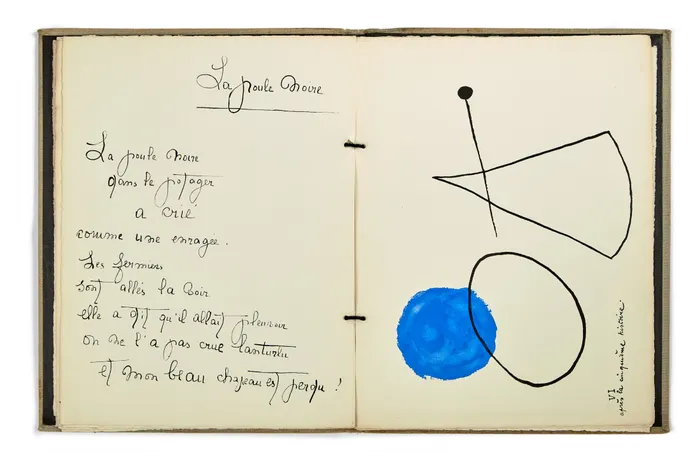 La poule Noire
La poule Noire
dans le potager
a crié
comme une enragée.
Les fermiers
sont allés la Voir
elle a dit qu'il allait pleuvoir
on ne l'a pas crue lanturlu
et mon beau chapeau est perdu !
VI
après la cinquième histoire.